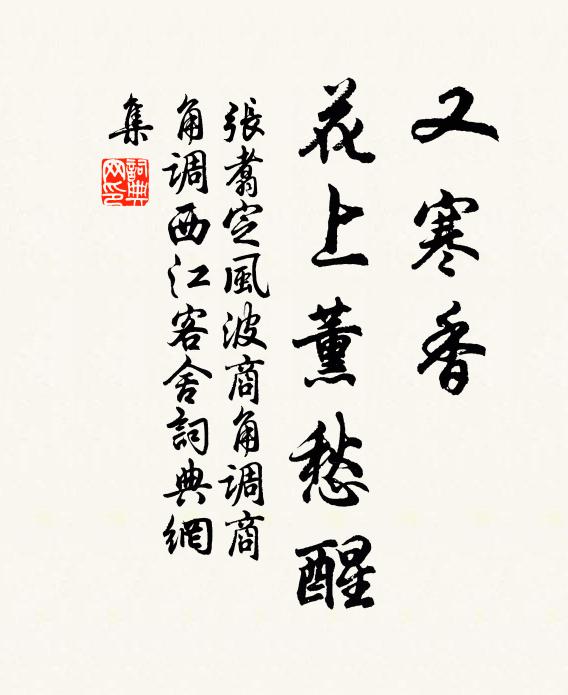 又寒香
花上薰愁醒
張翥定風波商角调商
角调西江客舍詞典網
集
詞典
网印